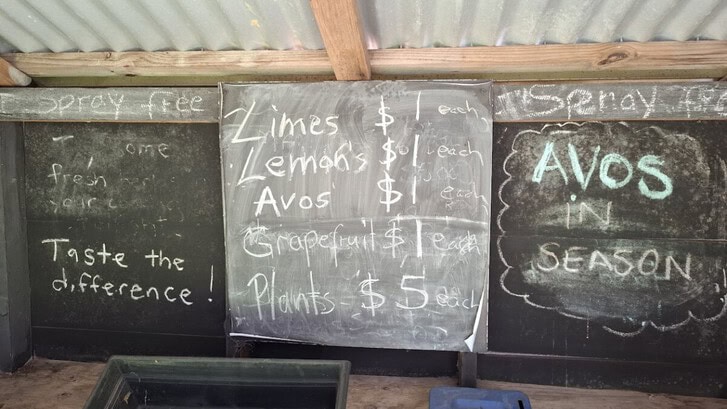 Spray free
Spray free
ome
fresh
your
Taste the
difference!
Limes $1 each
Lemon's $1 each
Avos $1 each
Grapefruit $1 each
Plants - $5 each
AVOS
IN
SEASON